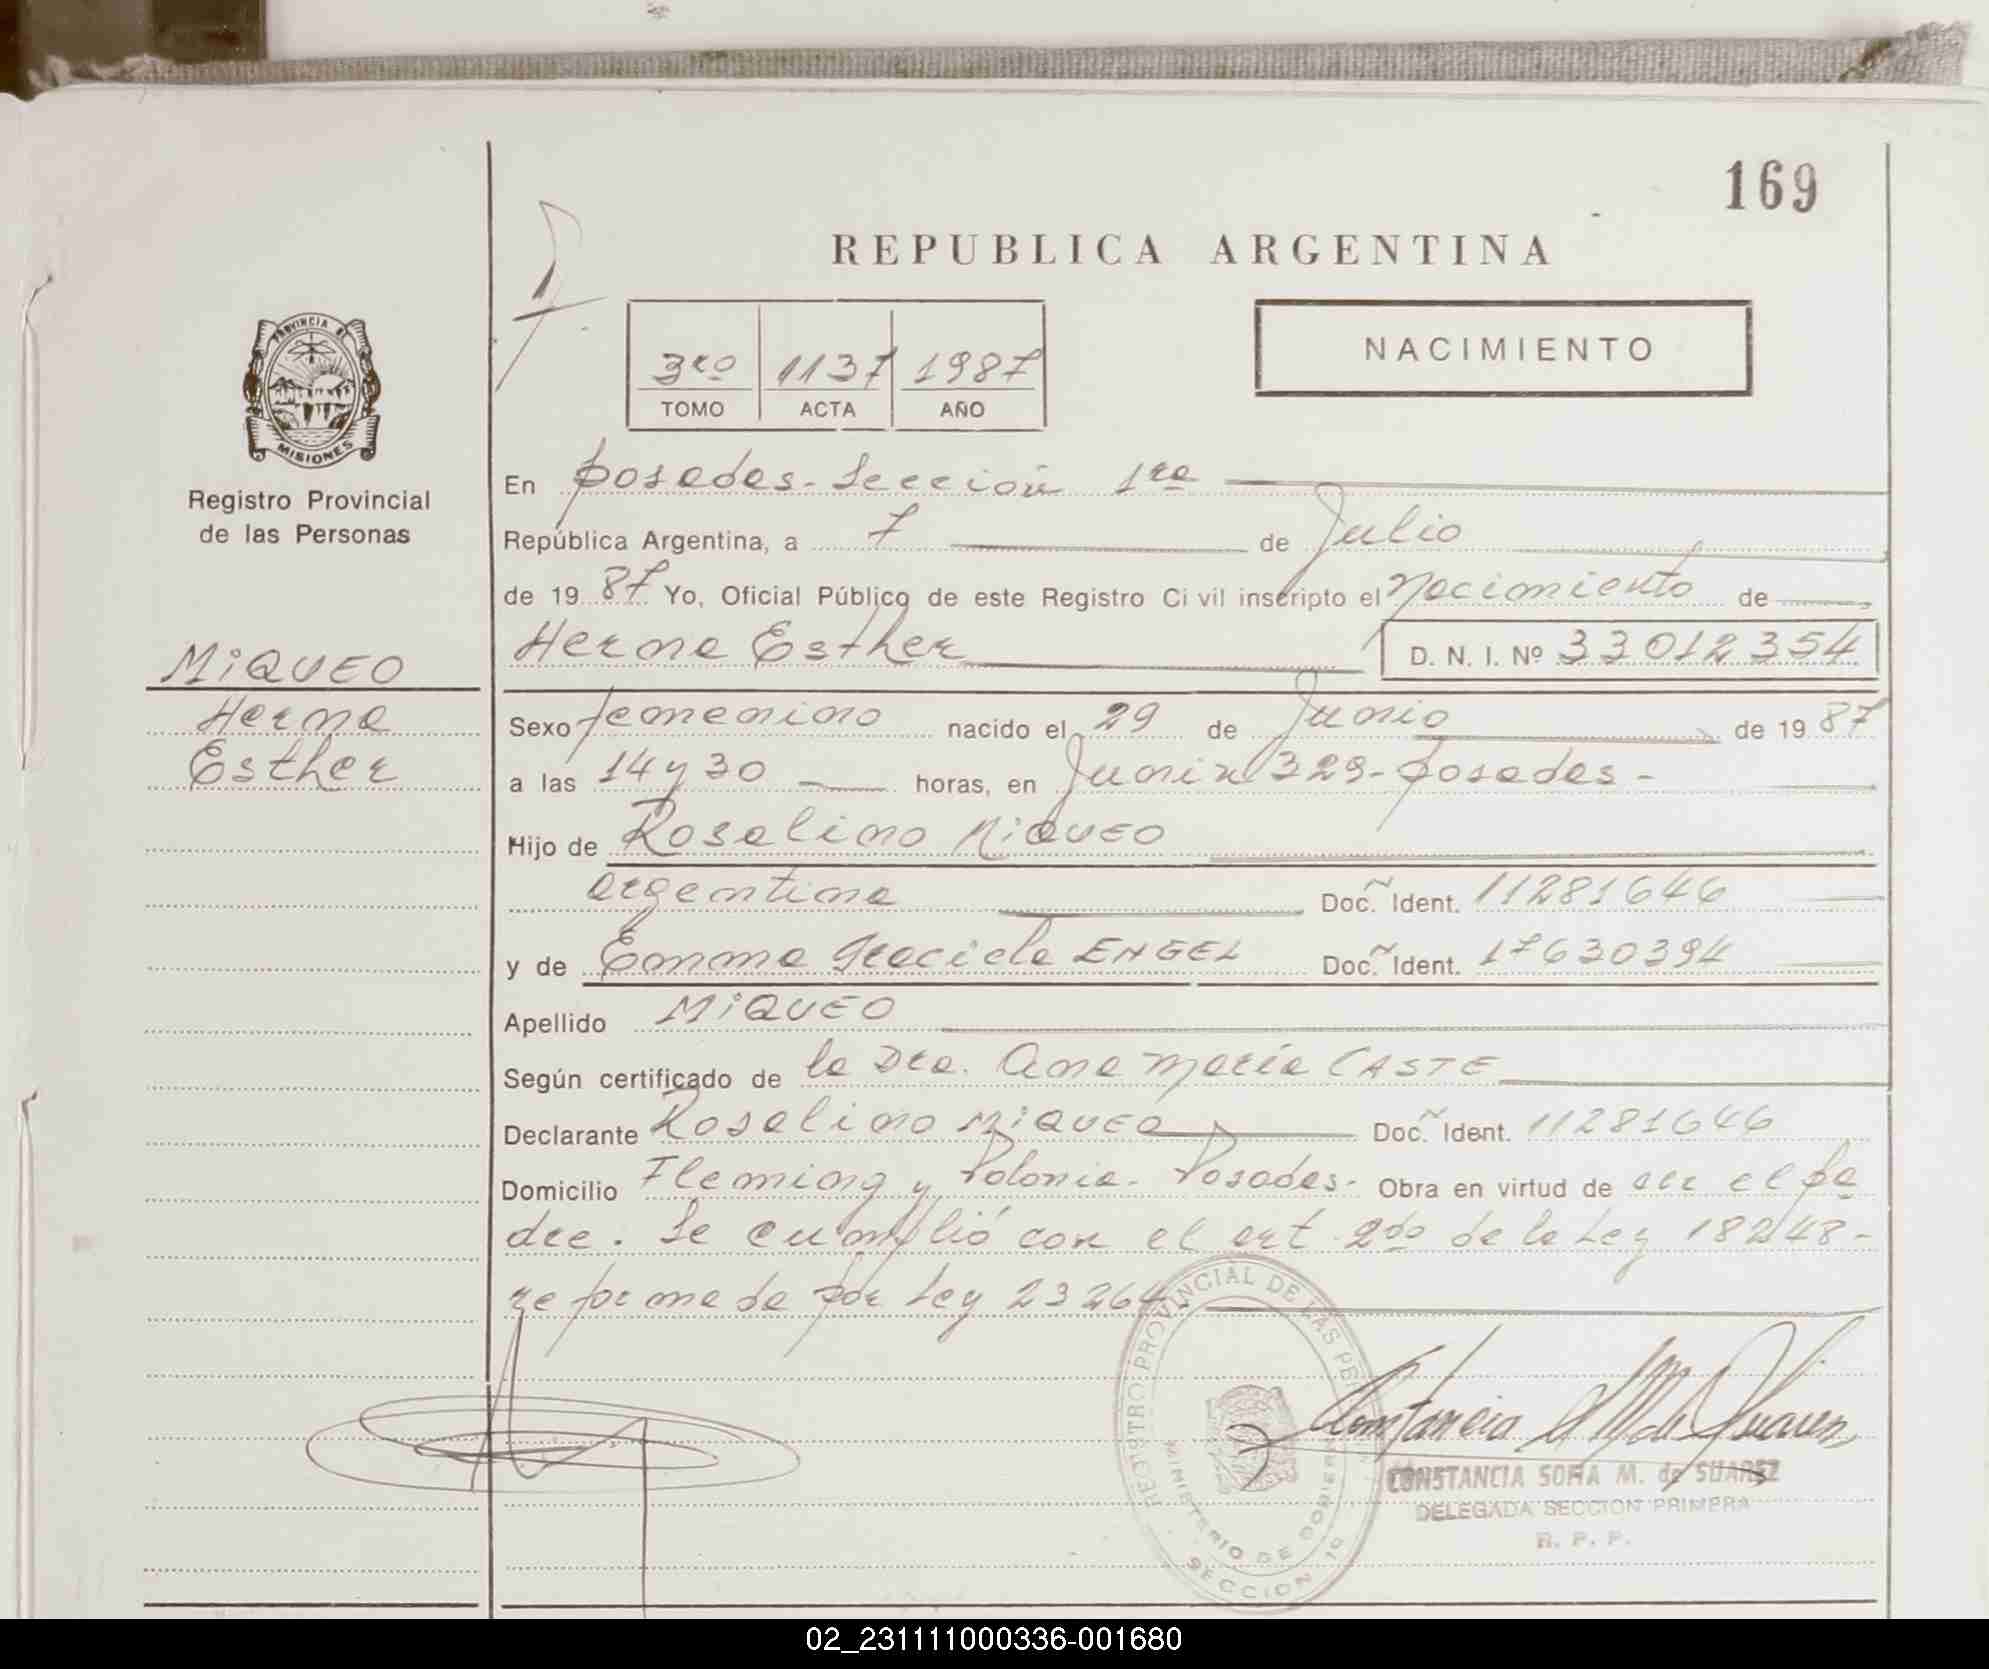 169
REPUBLICA ARGENTINA
3ro 1137 1987
TOMO ACTA AÑO
NACIMIENTO
PROVINCIA DE
MISIONES
Registro Provincial
de las Personas
MiQUEO
Herma
Esther
En Posadas - Sección 1ra
República Argentina, a 7 de Julio
de 19 87 Yo, Oficial Público de este Registro Civil inscripto el Nacimiento de
Herma Esther D. N. I. Nº 33012354
Sexo femenino nacido el 29 de Junio de 19 87
a las 14 y 30 horas, en Junín 329 - Posadas -
Hijo de Rosalino MiQUEO
argentina Doc. Ident. 11281646
y de Emma Graciela ENGEL Doc. Ident. 17630394
Apellido MiQUEO
Según certificado de la Dra. Ana María CASTE
Declarante Rosalino MiQUEO Doc. Ident. 11281646
Domicilio Fleming y Polonia - Posadas - Obra en virtud de ser el pa
dre. Se cumplió con el art 2do de la Ley 18248 -
reformada por Ley 23264.
REGISTRO PROVINCIAL DE LAS PE
MINISTERIO DE GOBIERN
SECCION 1a
Constancia S M de Suarez
CONSTANCIA SOFIA M. de SUAREZ
DELEGADA SECCION PRIMERA
R. P. P.
02_231111000336-001680